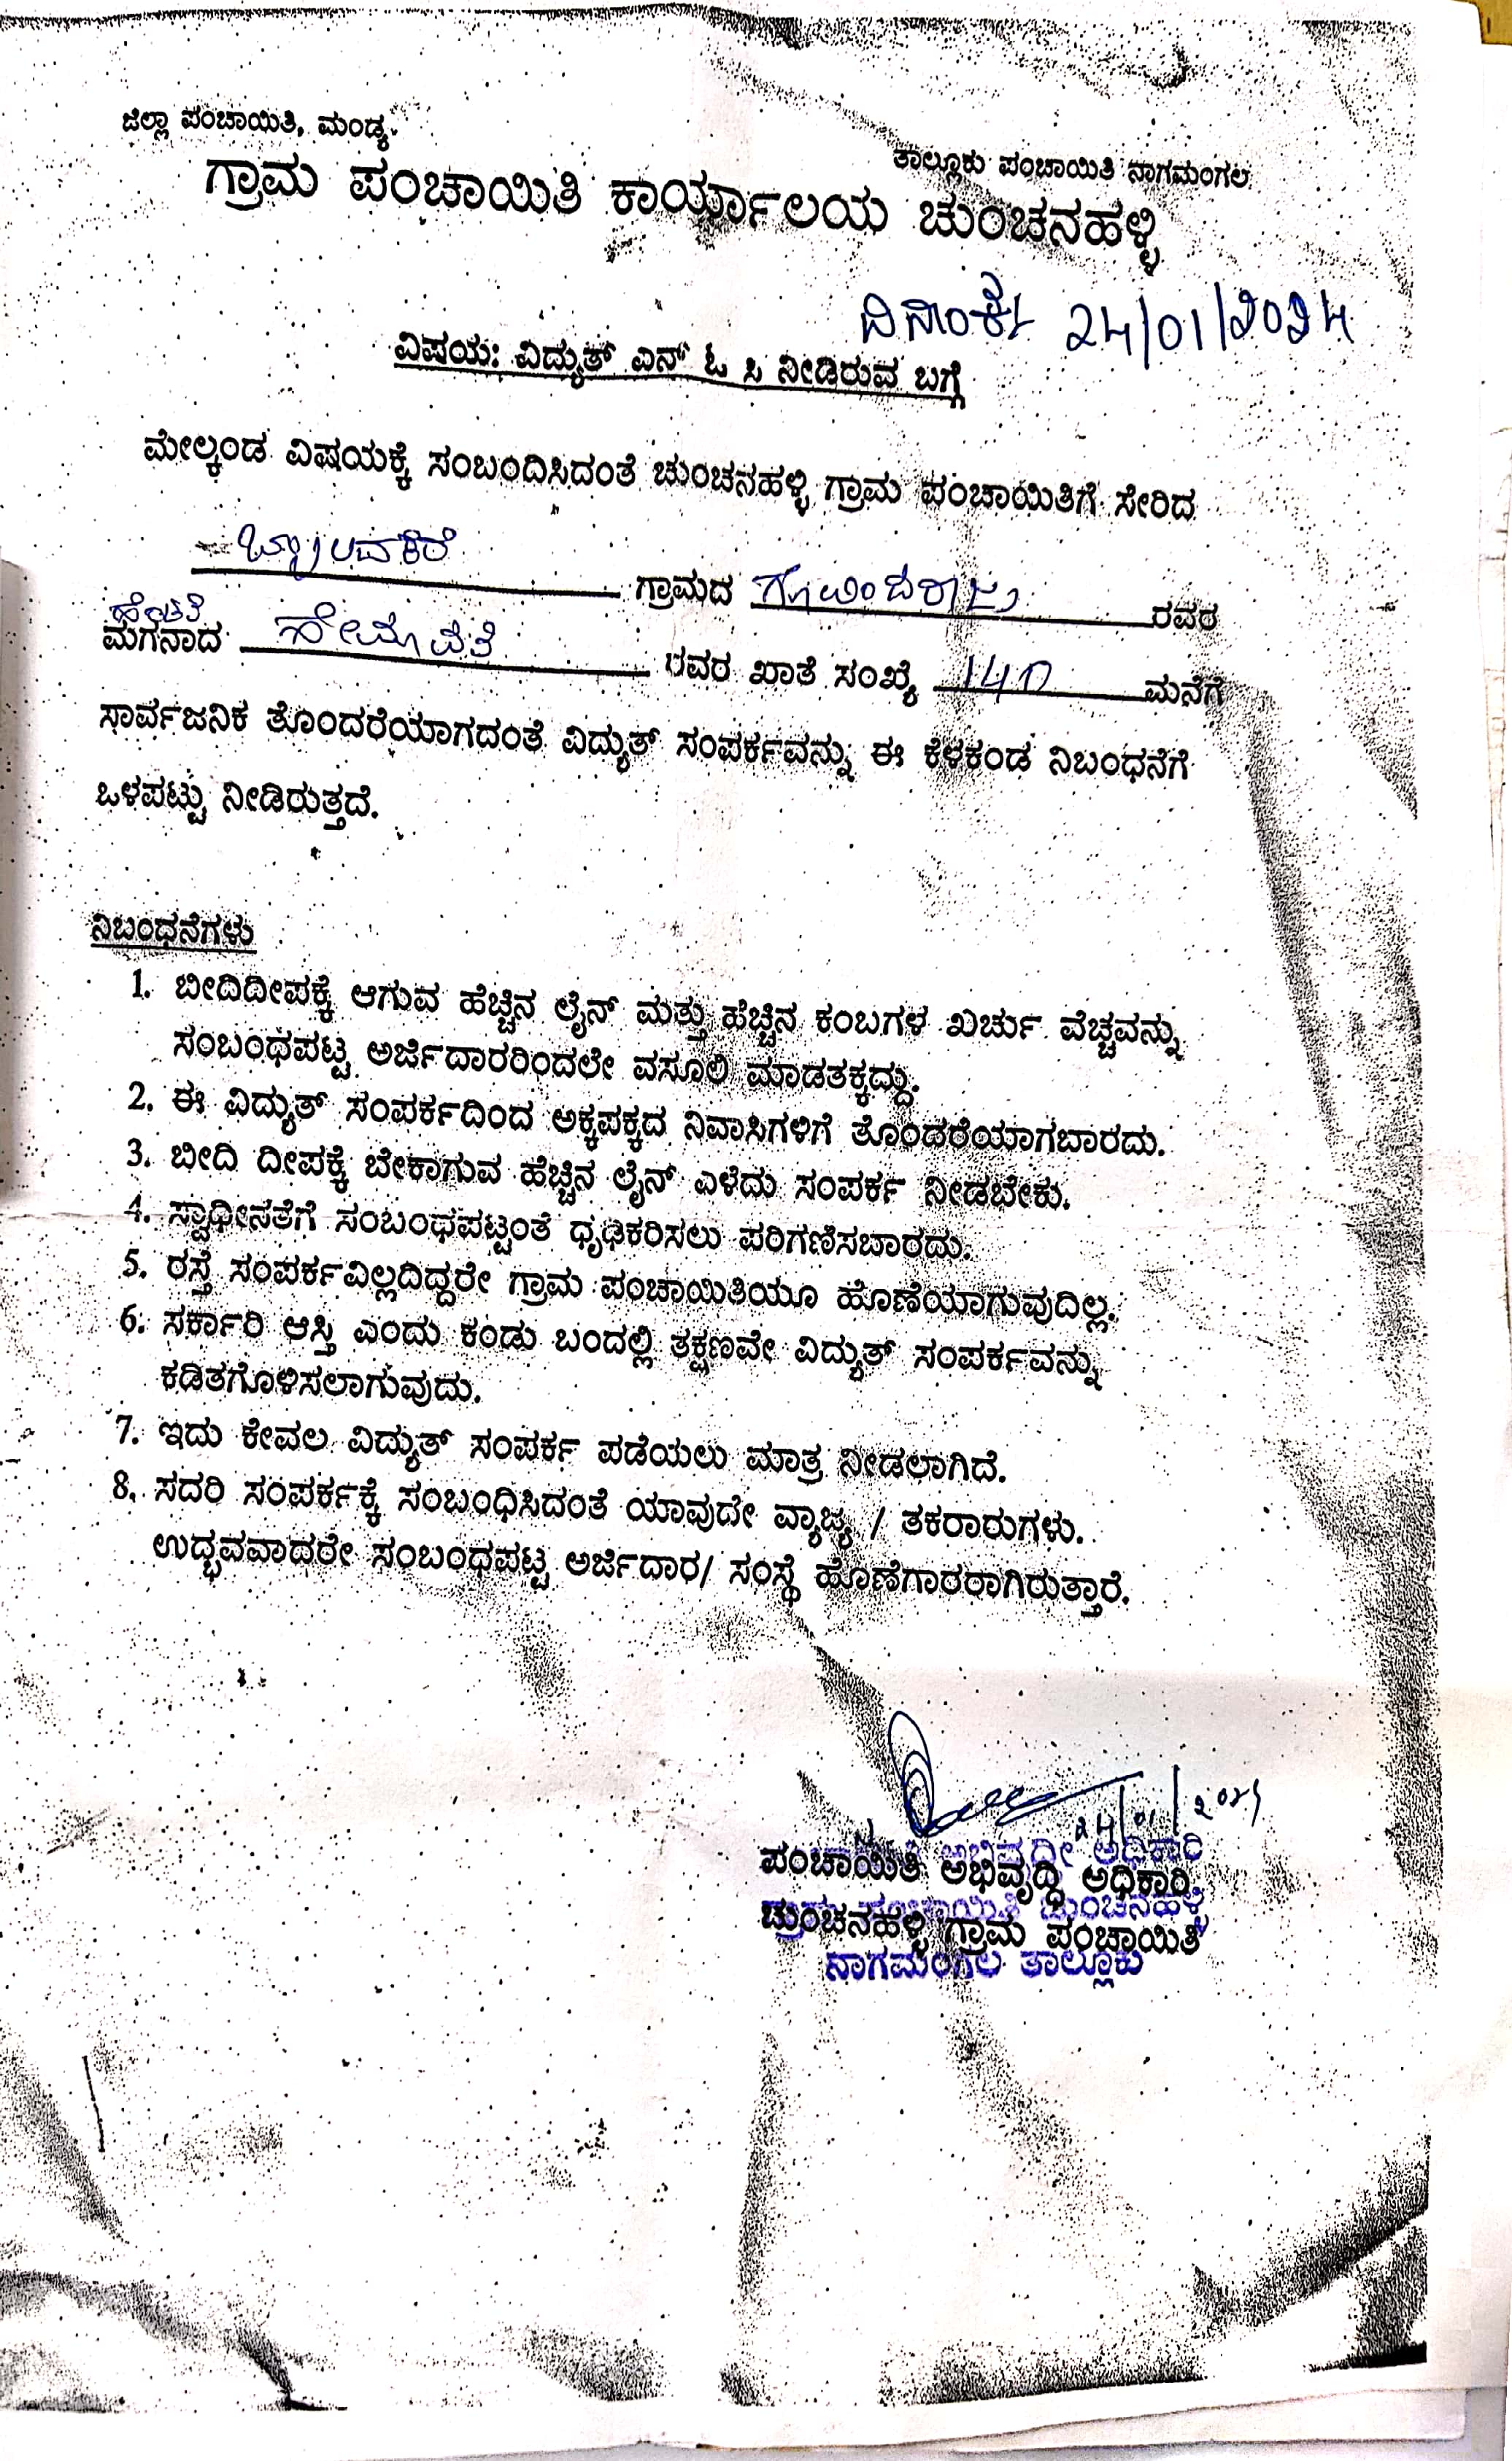 ಜಿಲ್ಲಾ ಪಂಚಾಯಿತಿ, ಮಂಡ್ಯ.
ತಾಲ್ಲೂಕು ಪಂಚಾಯಿತಿ ನಾಗಮಂಗಲ
ಗ್ರಾಮ ಪಂಚಾಯಿತಿ ಕಾರ್ಯಾಲಯ ಚುಂಚನಹಳ್ಳಿ
ದಿನಾಂಕ 24/01/2024
ವಿಷಯ: ವಿದ್ಯುತ್ ಎನ್ ಓ ಸಿ ನೀಡಿರುವ ಬಗ್ಗೆ
ಮೇಲ್ಕಂಡ ವಿಷಯಕ್ಕೆ ಸಂಬಂದಿಸಿದಂತೆ ಚುಂಚನಹಳ್ಳಿ ಗ್ರಾಮ ಪಂಚಾಯಿತಿಗೆ ಸೇರಿದ
ಗ್ರಾಮದ ಗೋವಿಂದರಾಜು ರವರ
ಮಗನಾದ ಹೇಮಾವತಿ ರವರ ಖಾತೆ ಸಂಖ್ಯೆ 140 ಮನೆಗೆ
ಸಾರ್ವಜನಿಕ ತೊಂದರೆಯಾಗದಂತೆ ವಿದ್ಯುತ್ ಸಂಪರ್ಕವನ್ನು ಈ ಕೆಳಕಂಡ ನಿಬಂಧನೆಗೆ
ಒಳಪಟ್ಟು ನೀಡಿರುತ್ತದೆ.
ನಿಬಂಧನೆಗಳು
1. ಬೀದಿದೀಪಕ್ಕೆ ಆಗುವ ಹೆಚ್ಚಿನ ಲೈನ್ ಮತ್ತು ಹೆಚ್ಚಿನ ಕಂಬಗಳ ಖರ್ಚು ವೆಚ್ಚವನ್ನು
ಸಂಬಂಧಪಟ್ಟ ಅರ್ಜಿದಾರರಿಂದಲೇ ವಸೂಲಿ ಮಾಡತಕ್ಕದ್ದು.
2. ಈ ವಿದ್ಯುತ್ ಸಂಪರ್ಕದಿಂದ ಅಕ್ಕಪಕ್ಕದ ನಿವಾಸಿಗಳಿಗೆ ತೊಂಡರೆಯಾಗಬಾರದು.
3. ಬೀದಿ ದೀಪಕ್ಕೆ ಬೇಕಾಗುವ ಹೆಚ್ಚಿನ ಲೈನ್ ಎಳೆದು ಸಂಪರ್ಕ ನೀಡಬೇಕು.
4. ಸ್ವಾಧೀನತೆಗೆ ಸಂಬಂಧಪಟ್ಟಂತೆ ಧೃಢಿಕರಿಸಲು ಪರಿಗಣಿಸಬಾರದು.
5. ರಸ್ತೆ ಸಂಪರ್ಕವಿಲ್ಲದಿದ್ದರೇ ಗ್ರಾಮ ಪಂಚಾಯಿತಿಯೂ ಹೊಣೆಯಾಗುವುದಿಲ್ಲ.
6. ಸರ್ಕಾರಿ ಆಸ್ತಿ ಎಂದು ಕಂಡು ಬಂದಲ್ಲಿ ತಕ್ಷಣವೇ ವಿದ್ಯುತ್ ಸಂಪರ್ಕವನ್ನು
ಕಡಿತಗೊಳಿಸಲಾಗುವುದು.
7. ಇದು ಕೇವಲ ವಿದ್ಯುತ್ ಸಂಪರ್ಕ ಪಡೆಯಲು ಮಾತ್ರ ನೀಡಲಾಗಿದೆ.
8. ಸದರಿ ಸಂಪರ್ಕಕ್ಕೆ ಸಂಬಂಧಿಸಿದಂತೆ ಯಾವುದೇ ವ್ಯಾಜ್ಯ / ತಕರಾರುಗಳು.
ಉದ್ಭವವಾದರೇ ಸಂಬಂಧಪಟ್ಟ ಅರ್ಜಿದಾರ/ ಸಂಸ್ಥೆ ಹೊಣೆಗಾರರಾಗಿರುತ್ತಾರೆ.
24/01/2024
ಅಭಿವೃದ್ಧೀ ಅಧಿಕಾರಿ
ಪಂಚಾಯಿತಿ ಅಭಿವೃದ್ಧಿ ಅಧಿಕಾರಿ,
ಪಂಚಾಯಿತಿ ಚುಂಚನಹಳ್ಳಿ
ಚುಂಚನಹಳ್ಳಿ ಗ್ರಾಮ ಪಂಚಾಯಿತಿ
ನಾಗಮಂಗಲ ತಾಲ್ಲೂಕು